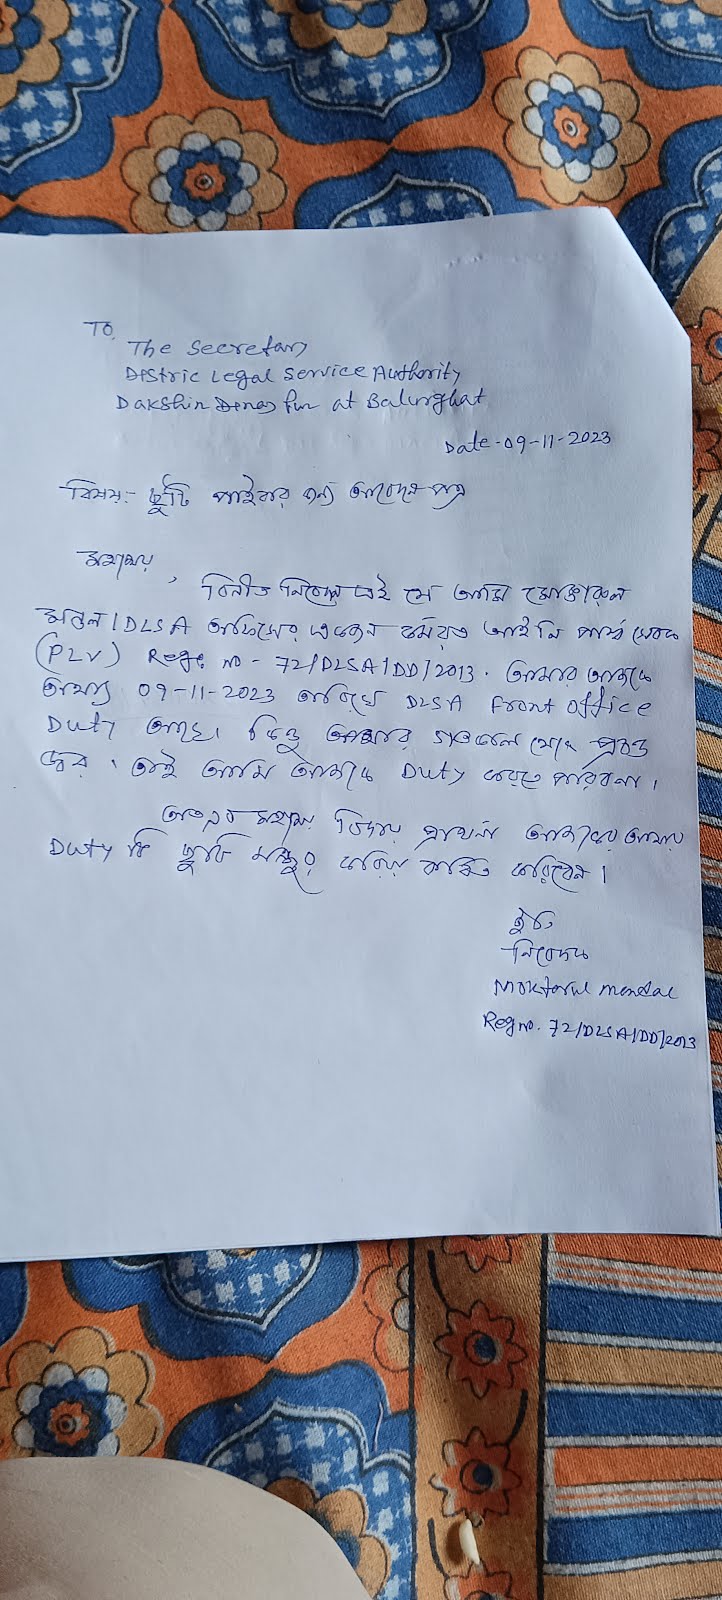 TO,
The Secretary
District Legal Service Authority
Dakshin Dinaj Pur at Balurghat
Date-09-11-2023
বিষয়:- ছুটি পাইবার জন্য আবেদন পত্র
মহাশয়,
বিনীত নিবেদন এই যে আমি মোক্তারুল
মন্ডল / DLSA অফিসের একজন কর্মরত আইনি পার্শ্ব সেবক
(PLV) Rege no - 72/DLSA/DD/2013. আমার আজকে
09-11-2023 তারিখে DLSA Front office
Duty আছে। কিন্তু আমার গতকাল থেকে প্রচন্ড
জ্বর। তাই আমি আজকে Duty করতে পারিবনা।
অতএব মহাশয় বিনয় প্রার্থনা আজকের আমার
Duty টি ছুটি মঞ্জুর করিয়া বাধিত করিবেন।
ইতি
নিবেদক
Moktarul mondal
Reg no. 72/DLSA/DD/2013